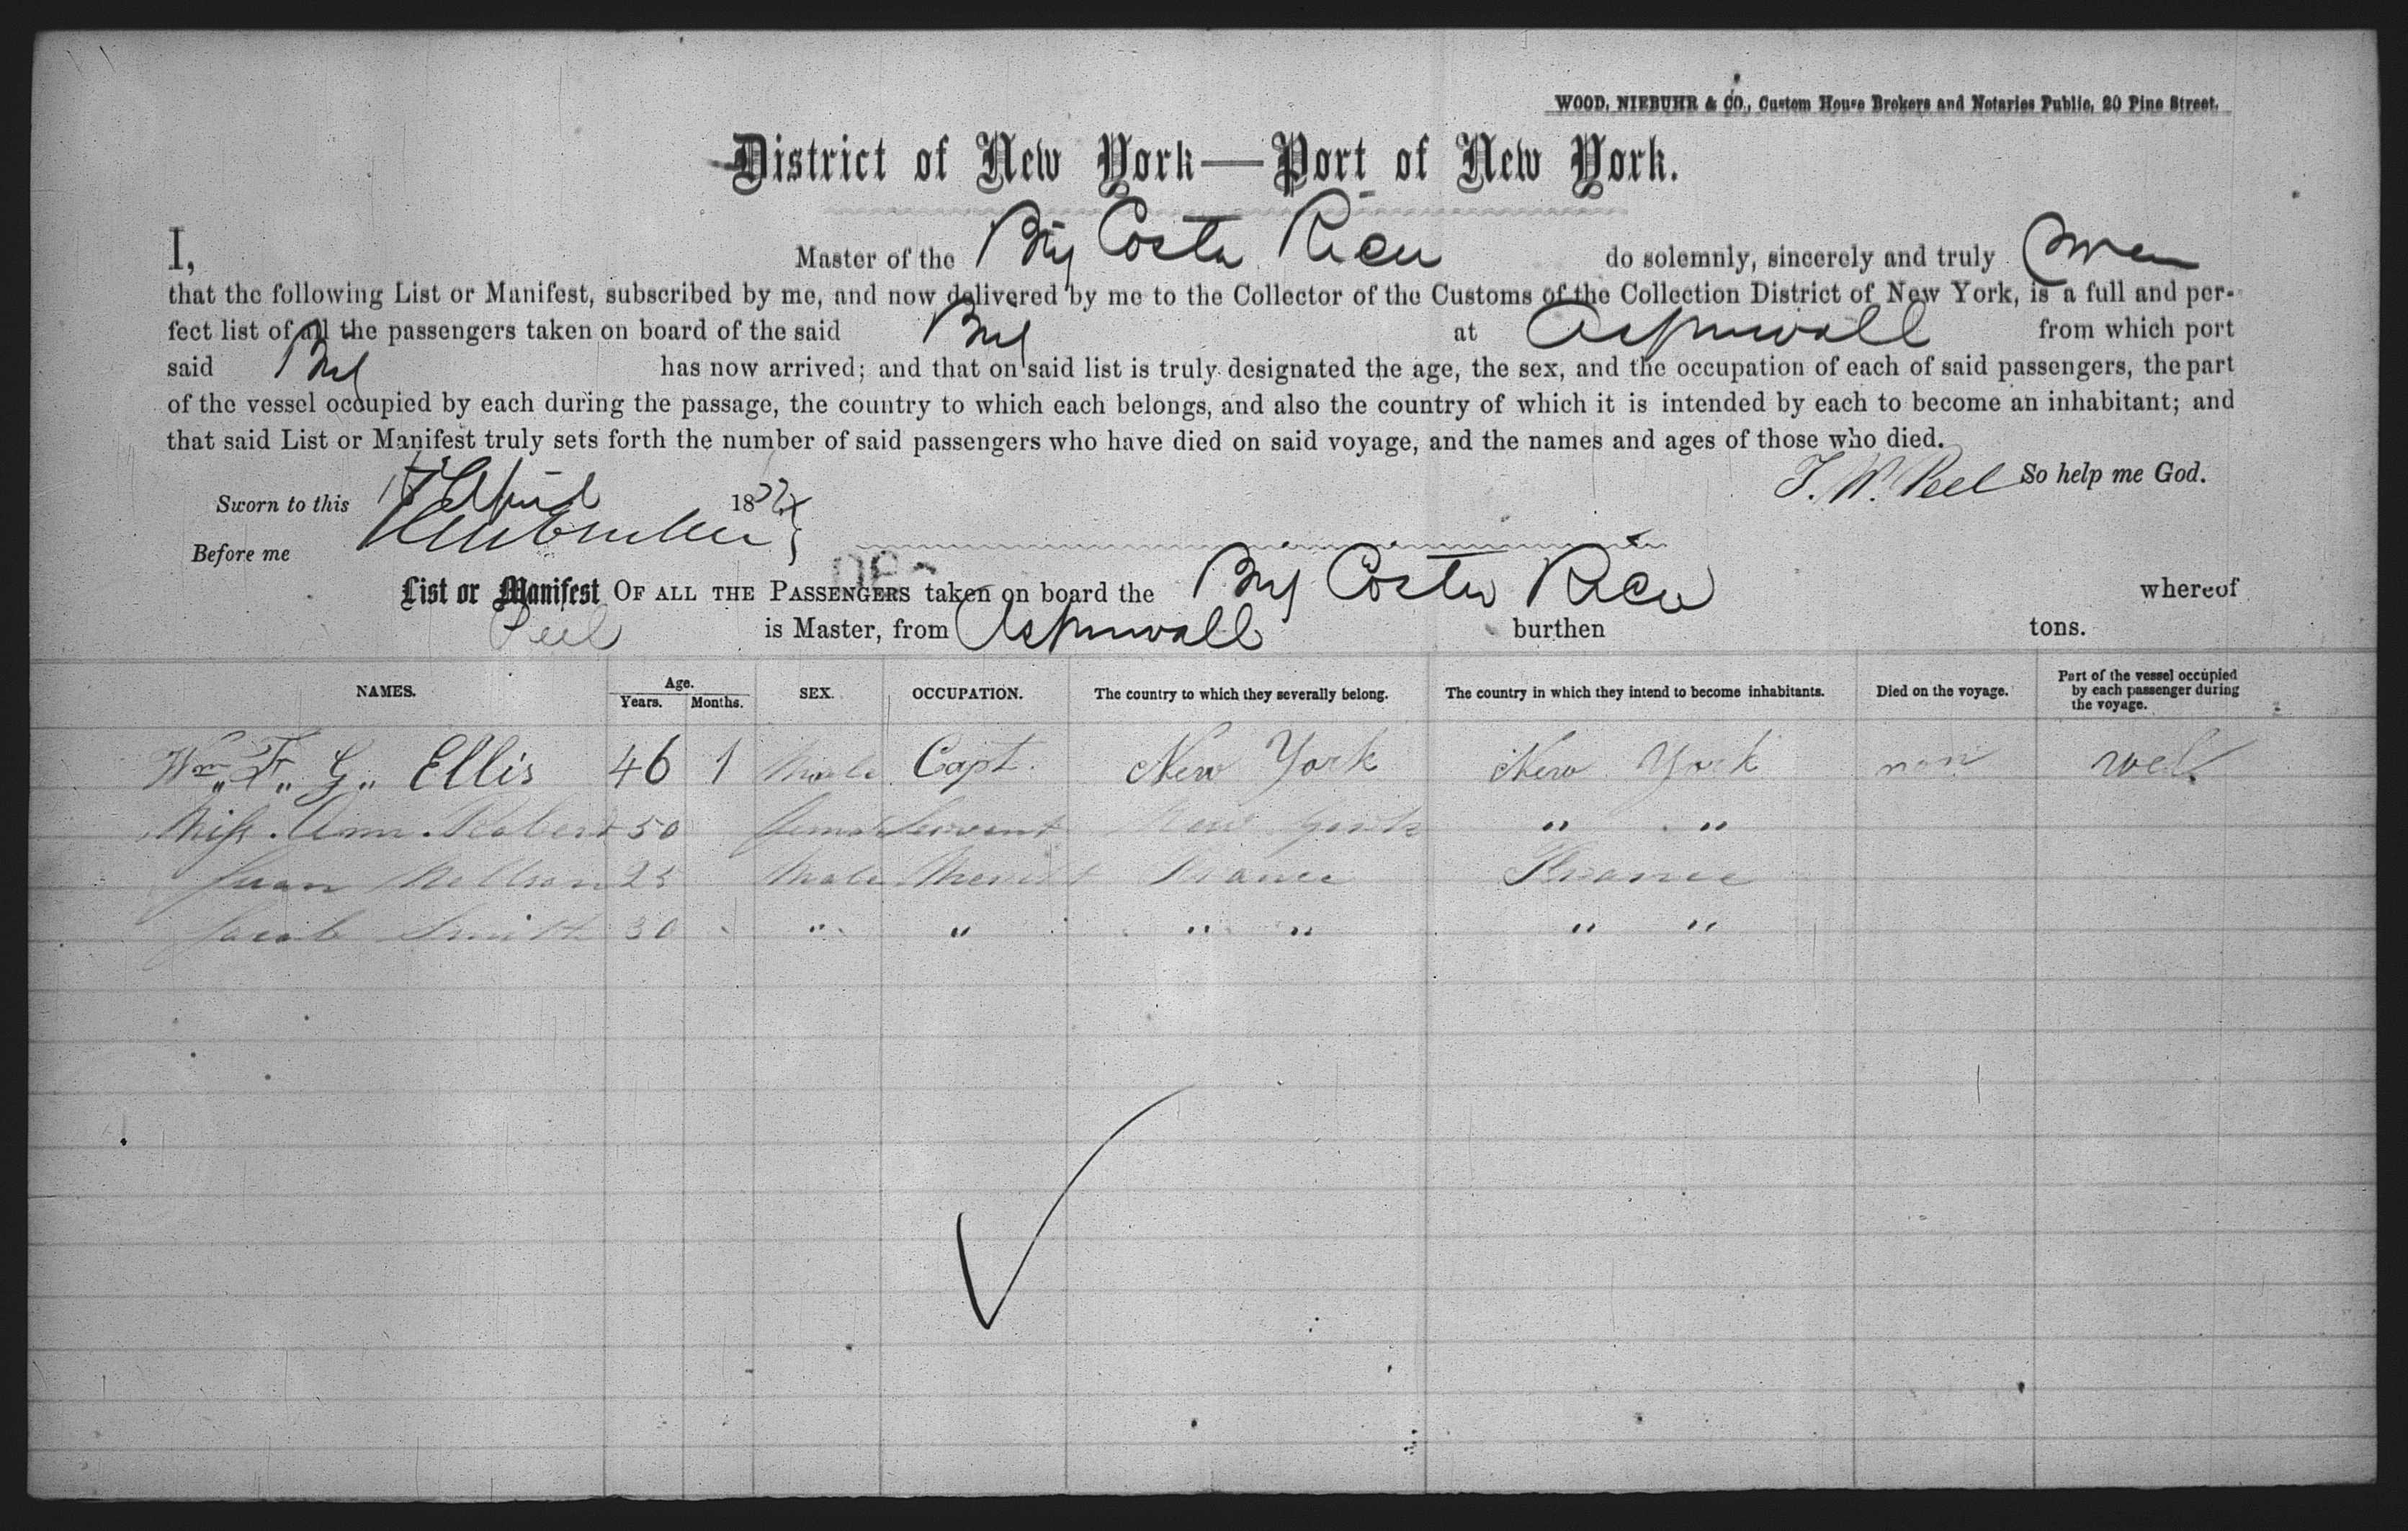 WOOD, NIEBUHR & CO., Custom House Brokers and Notaries Public, 20 Pine Street.
District of New York—Port of New York.
I, Master of the Brig Costa Rica do solemnly, sincerely and truly swear
that the following List or Manifest, subscribed by me, and now delivered by me to the Collector of the Customs of the Collection District of New York, is a full and per-
fect list of all the passengers taken on board of the said Brig at Aspinwall from which port
said Brig has now arrived; and that on said list is truly designated the age, the sex, and the occupation of each of said passengers, the part
of the vessel occupied by each during the passage, the country to which each belongs, and also the country of which it is intended by each to become an inhabitant; and
that said List or Manifest truly sets forth the number of said passengers who have died on said voyage, and the names and ages of those who died.
T. W. Peel So help me God.
Sworn to this April 187
Before me
List or Manifest OF ALL THE PASSENGERS taken on board the Brig Costa Rica whereof
Peel is Master, from Aspinwall burthen tons.
NAMES. Age. Years. Months. SEX. OCCUPATION. The country to which they severally belong. The country in which they intend to become inhabitants. Died on the voyage. Part of the vessel occupied by each passenger during the voyage.
Wm. F. G. Ellis 46 1 Male Capt. New York New York non well
Miss. Ann Robert 50 female Servant New York " "
Juan 25 Male France France
Jacob Smith 30 " " " " " "